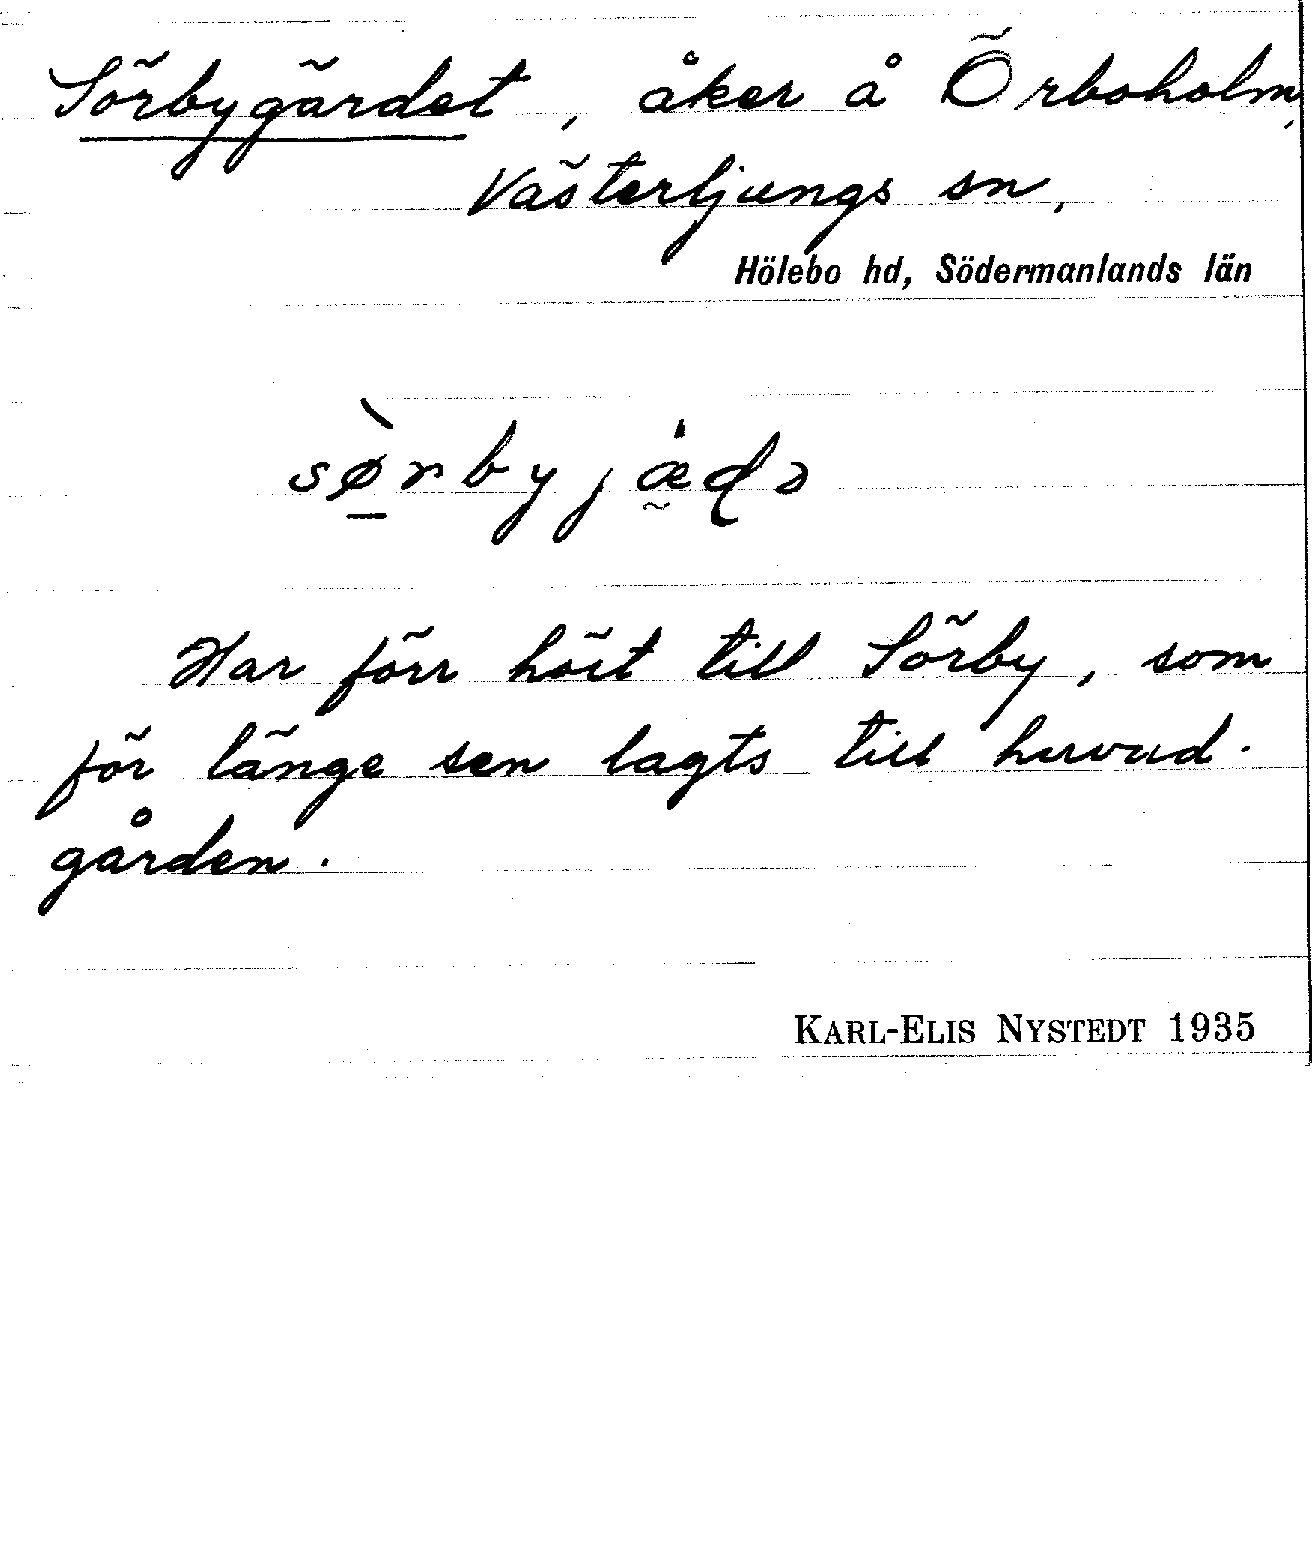 Sörbygärdet, åker å Örboholm,
Västerljungs sn,
Hölebo hd, Södermanlands län
sø̱̀rbyjæ̰̇ɖə
Har förr hört till Sörby, som
för länge sen lagts till huvud-
gården.
KARL-ELIS NYSTEDT 1935